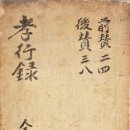 前賛二四
後賛三八
孝行録
全